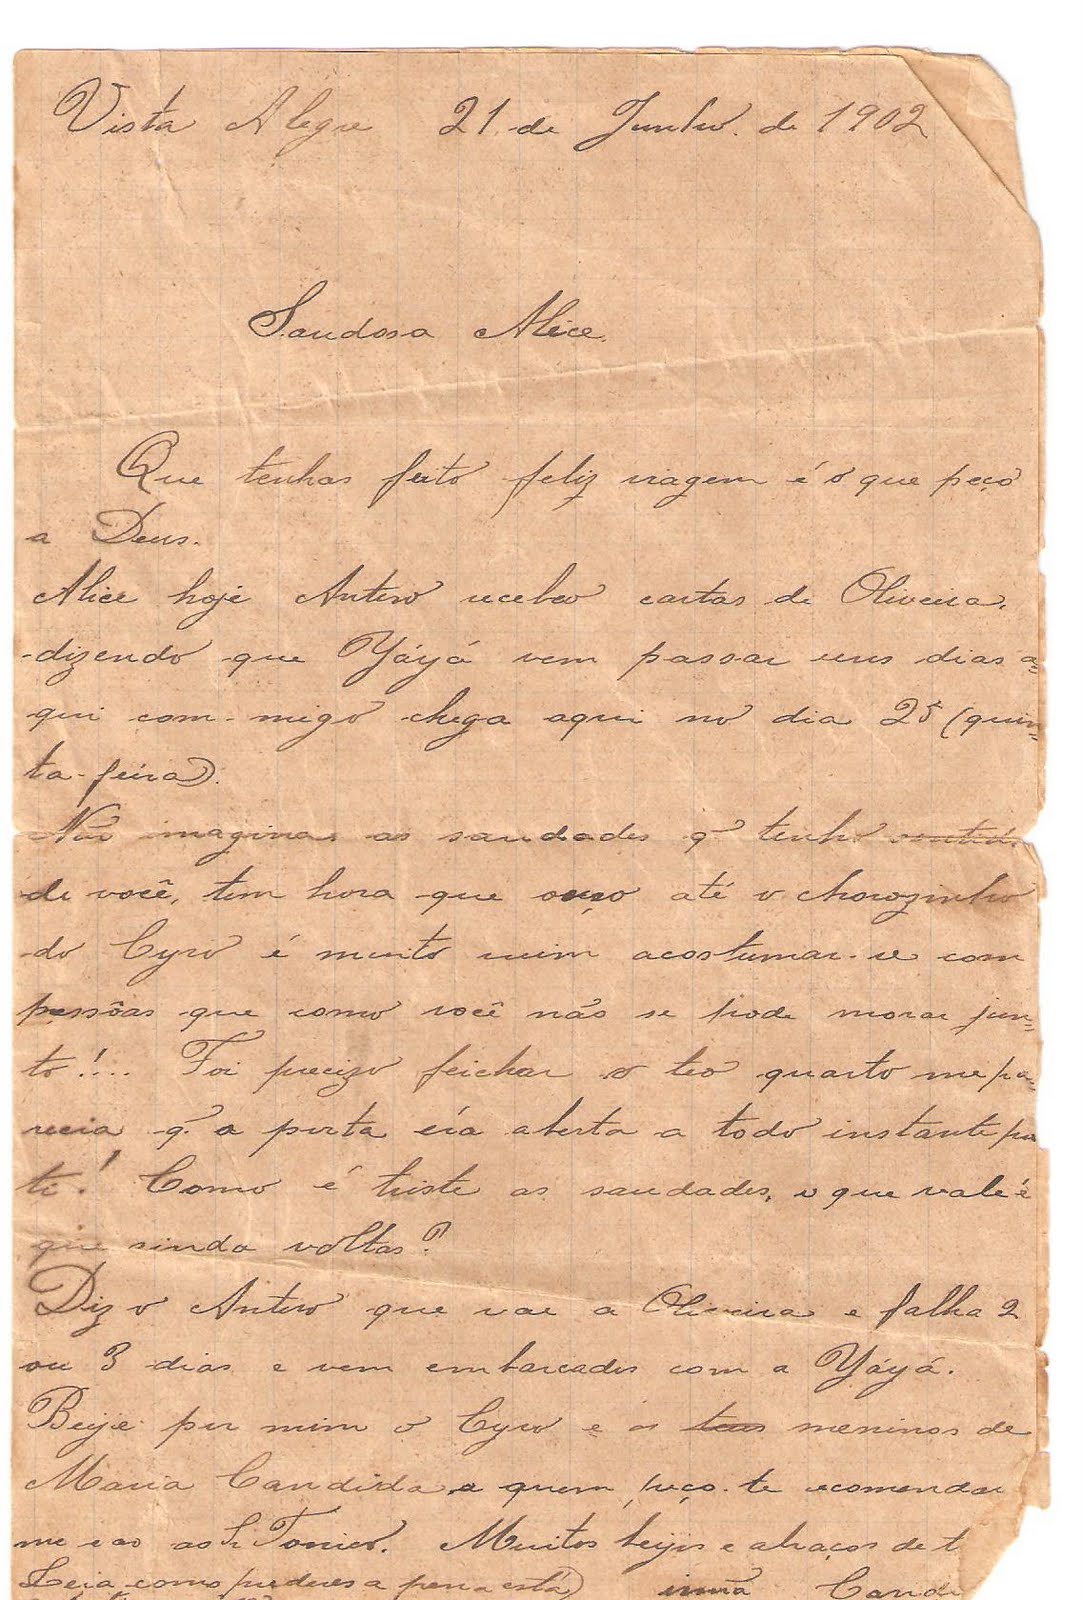 Vista Alegre 21 de Junho. de 1902
Saudosa Alice.
Que tenhas feito feliz viagem é o que peço
a Deus.
Alice hoje Antero recebeo cartas de Oliveira,
dizendo que Yáyá vem passar uns dias a-
qui com-migo chega aqui no dia 25 (quin-
ta-feira).
Não imaginas as saudades q tenho
de você, tem hora que ouço até o chorozinho
do Cyro é muito ruim acostumar-se com
pessôas que como você não se pode morar jun-
to!... Foi precizo feichar o teo quarto me pa-
recia q a porta éra aberta a todo instante por
ti! Como é triste as saudades, o que vale é
que ainda voltas?
Diz o Antero que vae a Oliveira e falha 2
ou 3 dias e vem embarcados com a Yáyá.
Beije por mim o Cyro e os teus meninos de
Maria Candida a quem peço-te recomendar
me e ao Tonico. Muitos beijos e abraços de t
Leia como puderes a pena está) irmã Cand